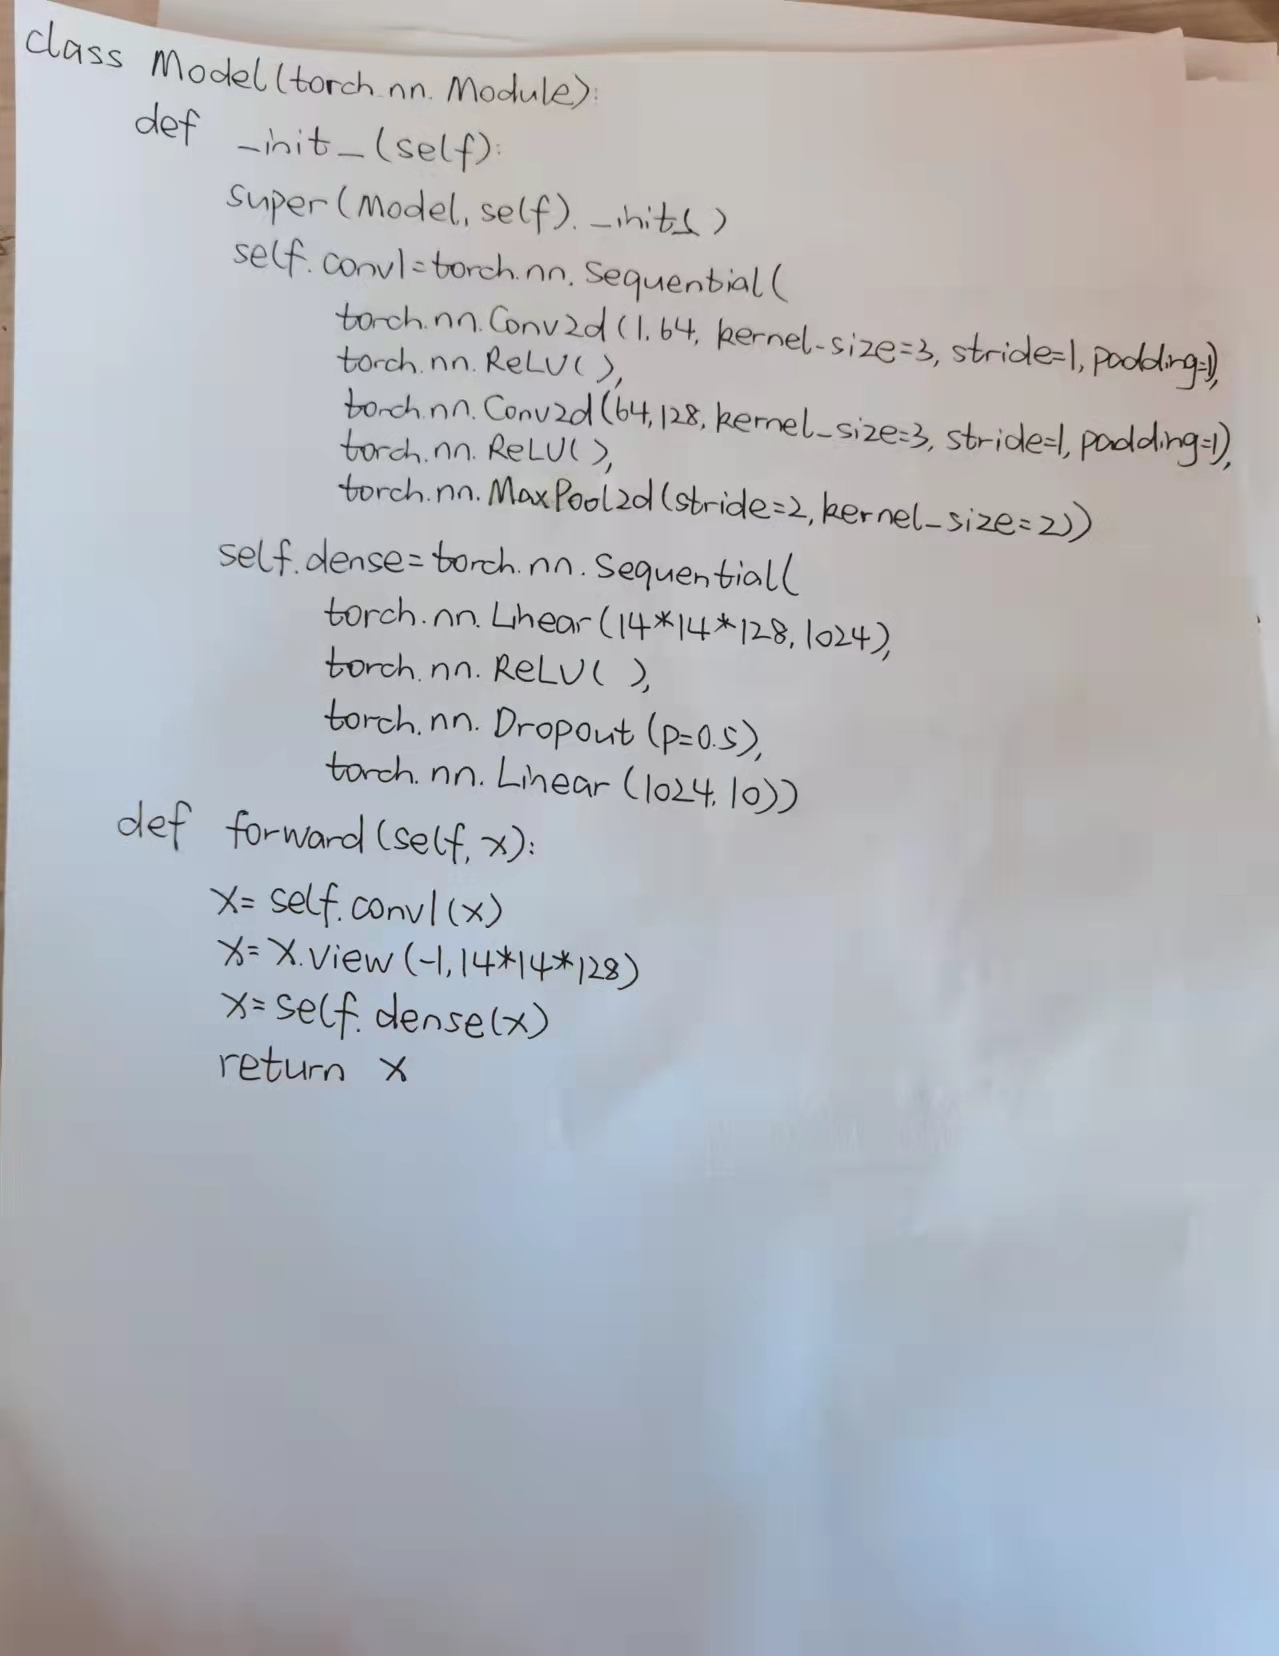 class Model(torch.nn.Module):
def _init_(self):
super(Model, self)._init_()
self.conv1=torch.nn.Sequential(
torch.nn.Conv2d(1,64, kernel_size=3, stride=1, padding=1),
torch.nn.ReLU(),
torch.nn.Conv2d(64,128, kernel_size=3, stride=1, padding=1),
torch.nn.ReLU(),
torch.nn.MaxPool2d(stride=2, kernel_size=2))
self.dense=torch.nn.Sequential(
torch.nn.Linear(14*14*128,1024),
torch.nn.ReLU( ),
torch.nn.Dropout(p=0.5),
torch.nn.Linear(1024,10))
def forward(self, x):
x= self.conv1(x)
x= x.view(-1,14*14*128)
x=self.dense(x)
return x